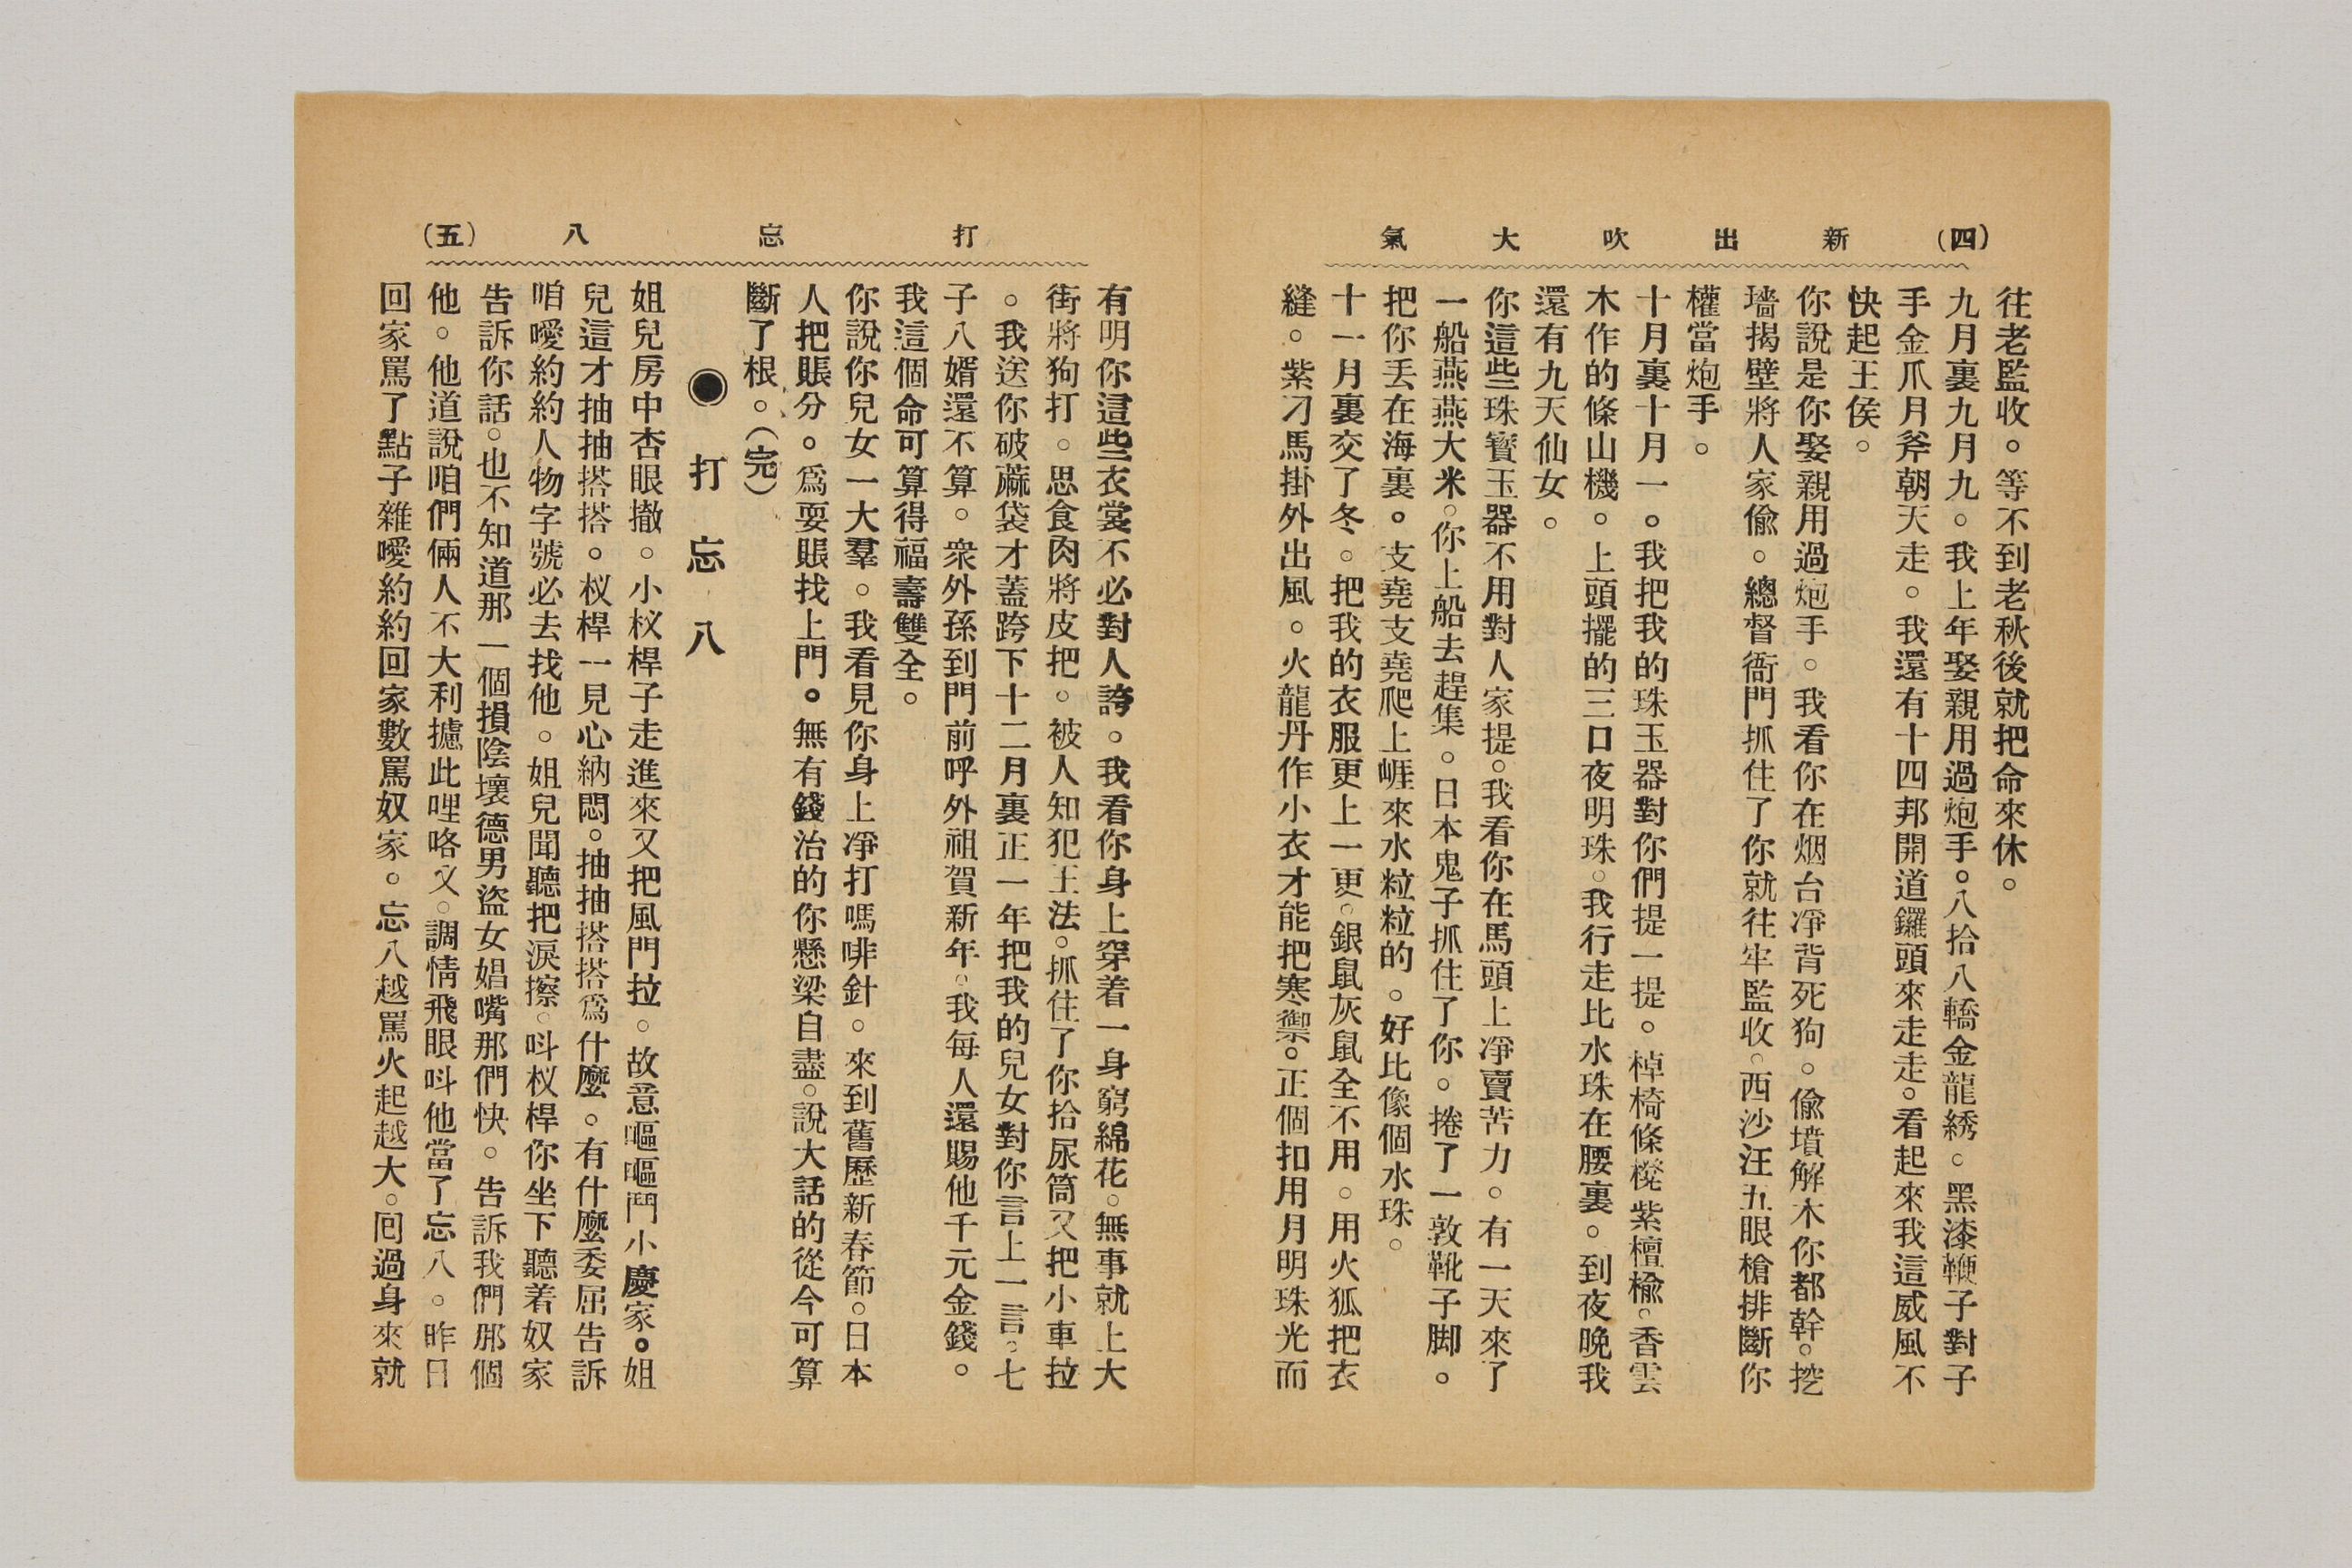 (四) 新出吹大氣
往老監收。等不到老秋後就把命來休。
九月裏九月九。我上年娶親用過炮手。八拾八轎金龍綉。黑漆鞭子對子
手金爪月斧朝天走。我還有十四邦開道鑼頭來走走。看起來我這威風不
快起王侯。
你說是你娶親用過炮手。我看你在烟台凈背死狗。偸墳解木你都幹。挖
墻揭壁將人家偸。總督衙門抓住了你就往牢監收。西沙汪五眼槍排斷你
權當炮手。
十月裏十月一。我把我的珠玉器對你們提一提。棹椅條櫈紫檀楡。香雲
木作的條山機。上頭擺的三口夜明珠。我行走比水珠在腰裏。到夜晚我
還有九天仙女。
你這些珠寶玉器不用對人家提。我看你在馬頭上凈賣苦力。有一天來了
一船燕燕大米。你上船去趕集。日本鬼子抓住了你。捲了一敦靴子脚。
把你丢在海裏。支堯支堯爬上崕來水粒粒的。好比像個水珠。
十一月裏交了冬。把我的衣服更上一更。銀鼠灰鼠全不用。用火狐把衣
縫。紫刁馬掛外出風。火龍丹作小衣才能把寒禦。正個扣用月明珠光而
打忘八 (五)
有明你這些衣裳不必對人誇。我看你身上穿着一身窮綿花。無事就上大
街將狗打。思食肉將皮把。被人知犯王法。抓住了你拾尿筒又把小車拉
。我送你破蔴袋才蓋跨下十二月裏正一年把我的兒女對你言上一言。七
子八婿還不算。衆外孫到門前呼外祖賀新年。我每人還賜他千元金錢。
我這個命可算得福壽雙全。
你說你兒女一大羣。我看見你身上凈打嗎啡針。來到舊歷新春節。日本
人把賬分。爲耍賬找上門。無有錢治的你懸梁自盡。說大話的從今可算
斷了根。(完)
◉打忘八
姐兒房中杏眼撤。小杈桿子走進來又把風門拉。故意嘔嘔鬥小慶家。姐
兒這才抽抽搭搭。杈桿一見心納悶。抽抽搭搭爲什麼。有什麼委屈告訴
咱噯約約人物字號必去找他。姐兒聞聽把淚擦。呌杈桿你坐下聽着奴家
告訴你話。也不知道那一個損陰壞德男盜女娼嘴那們快。告訴我們那個
他。他道說咱們倆人不大利攄此哩咯乂。調情飛眼呌他當了忘八。昨日
回家罵了點子雜噯約約回家數罵奴家。忘八越罵火起越大。囘過身來就